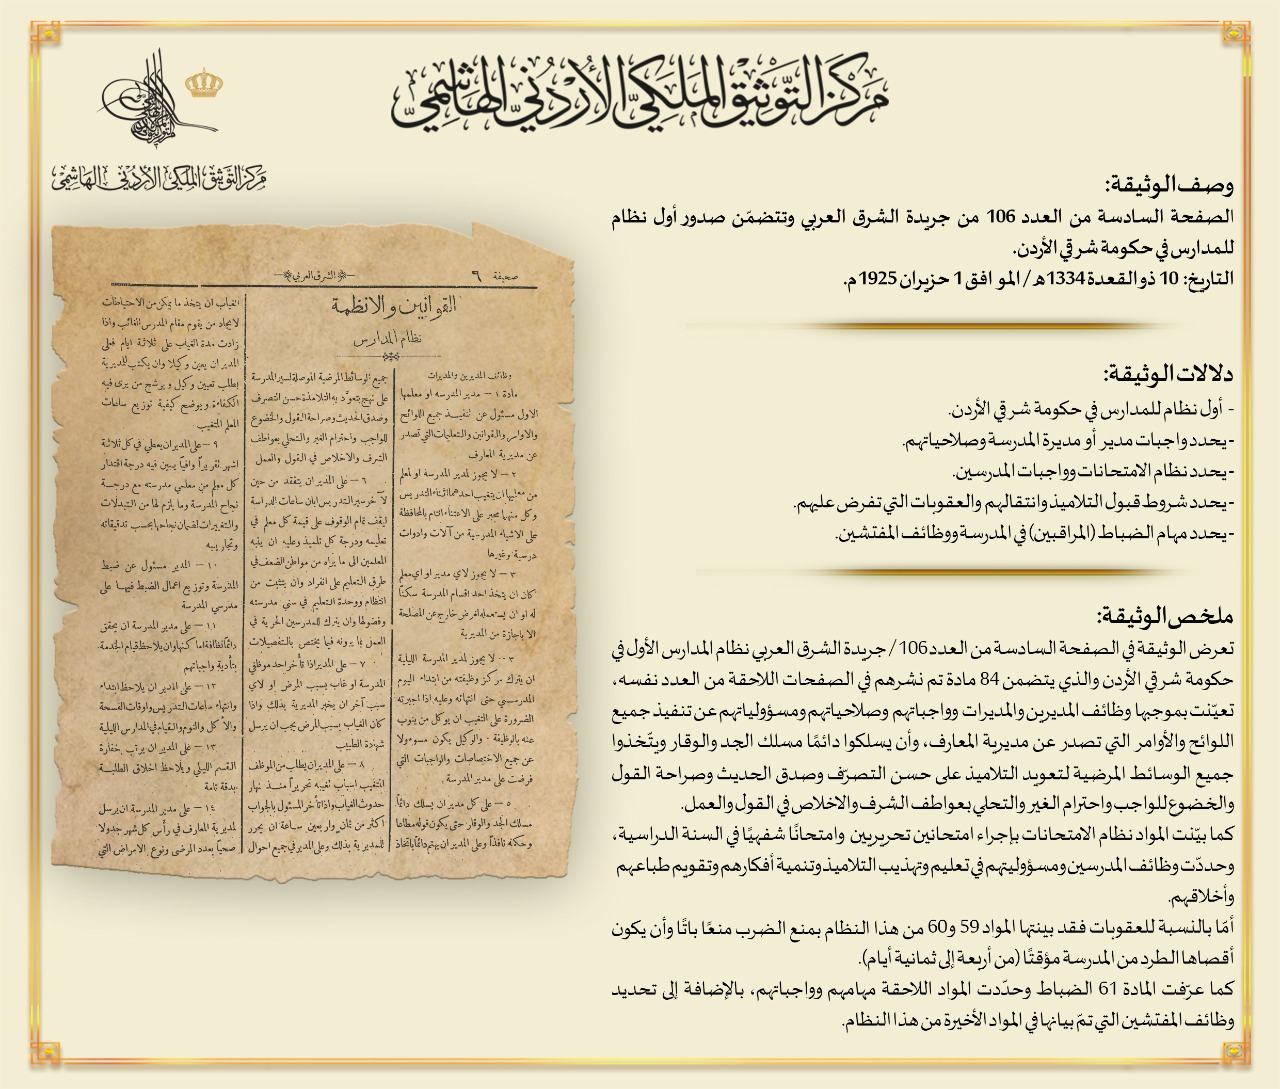 مركز التوثيق الملكي الأردني الهاشمي
مركز التوثيق الملكي الأردني الهاشمي
وصف الوثيقة:
الصفحة السادسة من العدد 106 من جريدة الشرق العربي وتتضمّن صدور أول نظام
للمدارس في حكومة شرقي الأردن.
التاريخ: 10 ذو القعدة 1334هـ / الموافق 1 حزيران 1925م.
دلالات الوثيقة:
- أول نظام للمدارس في حكومة شرقي الأردن.
-يحدد واجبات مدير أو مديرة المدرسة وصلاحياتهم.
-يحدد نظام الامتحانات وواجبات المدرسين.
-يحدد شروط قبول التلاميذ وانتقالهم والعقوبات التي تفرض عليهم.
-يحدد مهام الضباط (المراقبين) في المدرسة ووظائف المفتشين.
ملخص الوثيقة:
تعرض الوثيقة في الصفحة السادسة من العدد 106/ جريدة الشرق العربي نظام المدارس الأول في
حكومة شرقي الأردن والذي يتضمن 84 مادة تم نشرهم في الصفحات اللاحقة من العدد نفسه،
تعيّنت بموجبها وظائف المديرين والمديرات وواجباتهم وصلاحياتهم ومسؤولياتهم عن تنفيذ جميع
اللوائح والأوامر التي تصدر عن مديرية المعارف، وأن يسلكوا دائمًا مسلك الجد والوقار ويتّخذوا
جميع الوسائط المرضية لتعويد التلاميذ على حسن التصرّف وصدق الحديث وصراحة القول
والخضوع للواجب واحترام الغير والتحلي بعواطف الشرف والاخلاص في القول والعمل.
كما بيّنت المواد نظام الامتحانات بإجراء امتحانين تحريريين وامتحانًا شفهيًا في السنة الدراسية،
وحددّت وظائف المدرسين ومسؤوليتهم في تعليم وتهذيب التلاميذ وتنمية أفكارهم وتقويم طباعهم
وأخلاقهم.
أمّا بالنسبة للعقوبات فقد بينتها المواد 59 و60 من هذا النظام بمنع الضرب منعًا باتًا وأن يكون
أقصاها الطرد من المدرسة مؤقتًا (من أربعة إلى ثمانية أيام).
كما عرّفت المادة 61 الضباط وحدّدت المواد اللاحقة مهامهم وواجباتهم، بالإضافة إلى تحديد
وظائف المفتشين التي تمّ بيانها في المواد الأخيرة من هذا النظام.
صحيفة ٦
الشرق العربي
القوانين والانظمة
نظام المدارس
وظائف المديرين والمديرات
مادة ١ – مدير المدرسه او معلمها
الاول مسئول عن تنفيذ جميع اللوائح
والاوامر والقوانين والتعليمات التي تصدر
عن مديرية المعارف
٢ – لا يجوز لمدير المدرسة او لمعلم
من معلميها ان يتغيب احدهما اثناء التدريس
وكل منهما مجبر على الاعتناء التام بالمحافظة
على الاشياء المدرسية من آلات وادوات
درسية وغيرها
٣ – لا يجوز لاي مدير او اي معلم
كان ان يتخذ احد اقسام المدرسة سكناً
له او ان يستعمله لغرض خارج عن المصلحة
الا باجازة من المديرية
٣ – لا يجوز لمدير المدرسة الليلية
ان يترك مركز وظيفته من ابتداء اليوم
المدرسي حتى انتهائه وعليه اذا اجبرته
الضرورة على التغيب ان يوكل من ينوب
عنه بالوظيفة والوكيل يكون مسوءولا
عن جميع الاختصاصات والواجبات التي
فرضت على مدير المدرسة
٥ – على كل مدير ان يسلك دائماً
مسلك الجد والوقار حتى يكون قوله مطاعا
وحكمه نافذاً وعلى المدير ان يهتم دائماً باتخاذ
جميع الوسائط المرضية الموصلة لسير المدرسة
على نهج يتعوّد به التلامذة حسن التصرف
وصدق الحديث وصراحة القول والخضوع
للواجب واحترام الغير والتحلي بعواطف
الشرف والاخلاص في القول والعمل
٦ – على المدير ان يتفقد من حين
لآخر سير التدريس ابان ساعات الدراسة
ليقف تمام الوقوف على قيمة كل معلم في
تعليمه ودرجة كل تلميذ وعليه ان ينبه
المعلمين الى ما يراه من مواطن الضعف في
طرق التعليم على انفراد وان يتثبت من
انتظام ووحدة التعليم في سني مدرسته
وفصولها وان يترك للمدرسين الحرية في
العمل بما يرونه فيما يختص بالتفصيلات
٧ – على المدير اذا تأخر احد موظفي
المدرسة او غاب بسبب المرض او لاي
سبب آخر ان يخبر المديرية بذلك واذا
كان الغياب بسبب المرض يجب ان يرسل
شهادة الطبيب
٨ – على المدير ان يطلب من الموظف
المتغيب اسباب تغيبه تحريراً منذ نهار
حدوث الغياب واذا تأخر المسئول بالجواب
اكثر من ثمان واربعين ساعة ان يحرر
للمديرية بذلك وعلى المدير في جميع احوال
الغياب ان يتخذ ما يمكن من الاحتياطات
لايجاد من يقوم مقام المدرس الغائب واذا
زادت مدة الغياب على ثلاثة ايام فعلى
المدير ان يعين وكيلا وان يكتب للمديرية
بطلب تعيين وكيل ويرشح من يرى فيه
الكفاءة ويوضح كيفية توزيع ساعات
المعلم المتغيب.
٩ – على المدير ان يعطي في كل ثلاثة
اشهر تقريراً وافياً يبين فيه درجة اقتدار
كل معلم من معلمي مدرسته مع درجة
نجاح المدرسة وما يلزم لها من التبدلات
والتغييرات لضمان نجاحها بحسب تدقيقاته
وتجاريبه
١٠ – المدير مسئول عن ضبط
المدرسة وتوزيع اعمال الضبط فيها على
مدرسي المدرسة
١١ – على مدير المدرسة ان يحقق
دائماً نظافة اماكنها وان يلاحظ قيام الخدمة
بتأدية واجباتهم
١٢ – على المدير ان يلاحظ ابتداء
وانتهاء ساعات التدريس واوقات الفسحة
والاكل والنوم والقيام في المدارس الليلية
١٣ – على المدير ان يرتب خفارة
القسم الليلي ويلاحظ اخلاق الطلبة
بدقة تامة
١٤ – على مدير المدرسة ان يرسل
لمديرية المعارف في رأس كل شهر جدولا
صحياً بعدد المرضى ونوع الامراض التي